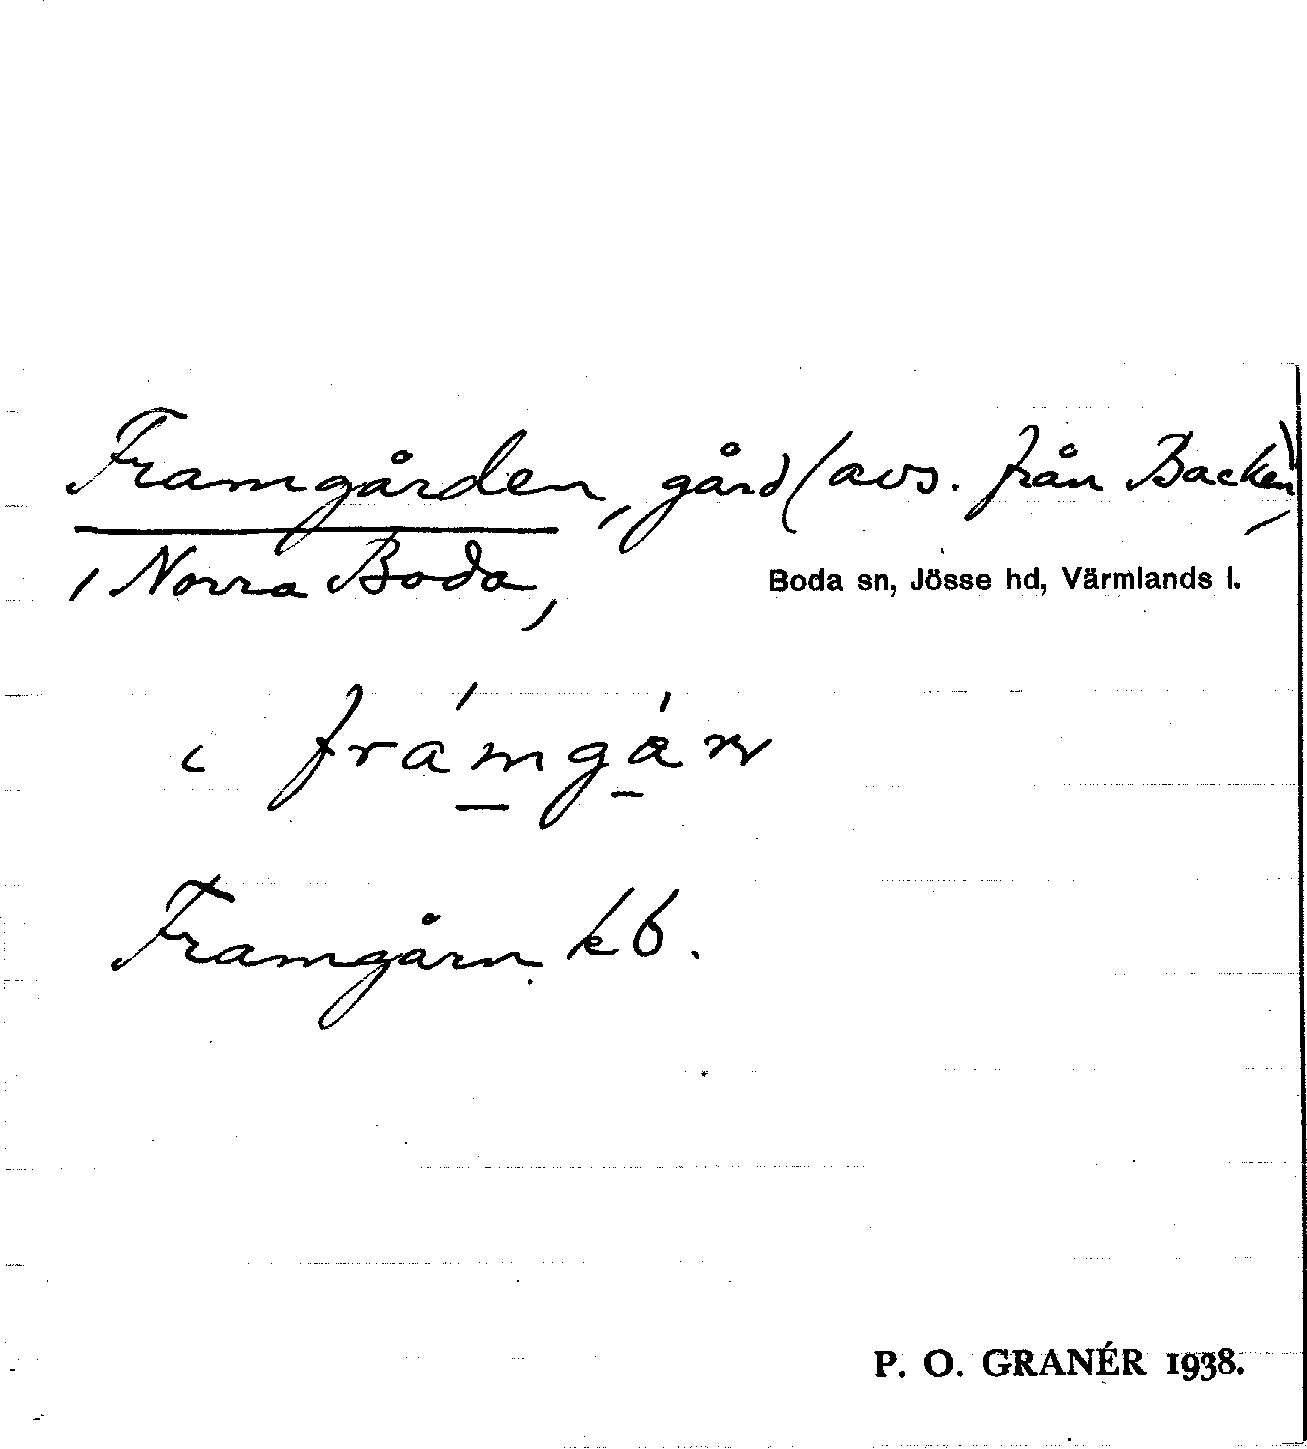 Framgården, gård (avs. från Backen)
i Norra Boda,
Boda sn, Jösse hd, Värmlands l.
i
Framgårn kb.
P. O. GRANÉR 1938.